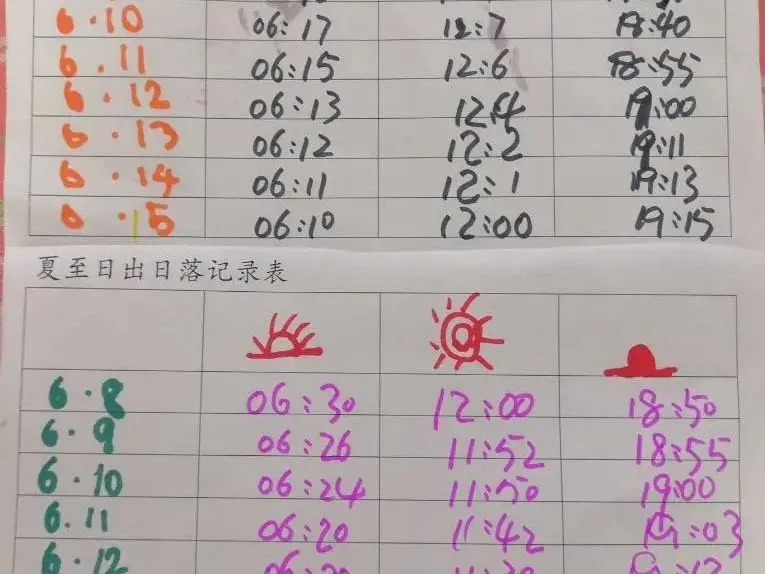 6.10 06:17 12:7 18:40
6.11 06:15 12:6 18:55
6.12 06:13 12:4 19:00
6.13 06:12 12:2 19:11
6.14 06:11 12:1 19:13
6.15 06:10 12:00 19:15
夏至日出日落记录表
6.8 06:30 12:00 18:50
6.9 06:26 11:52 18:55
6.10 06:24 11:50 19:00
6.11 06:20 11:42 19:03
6.12